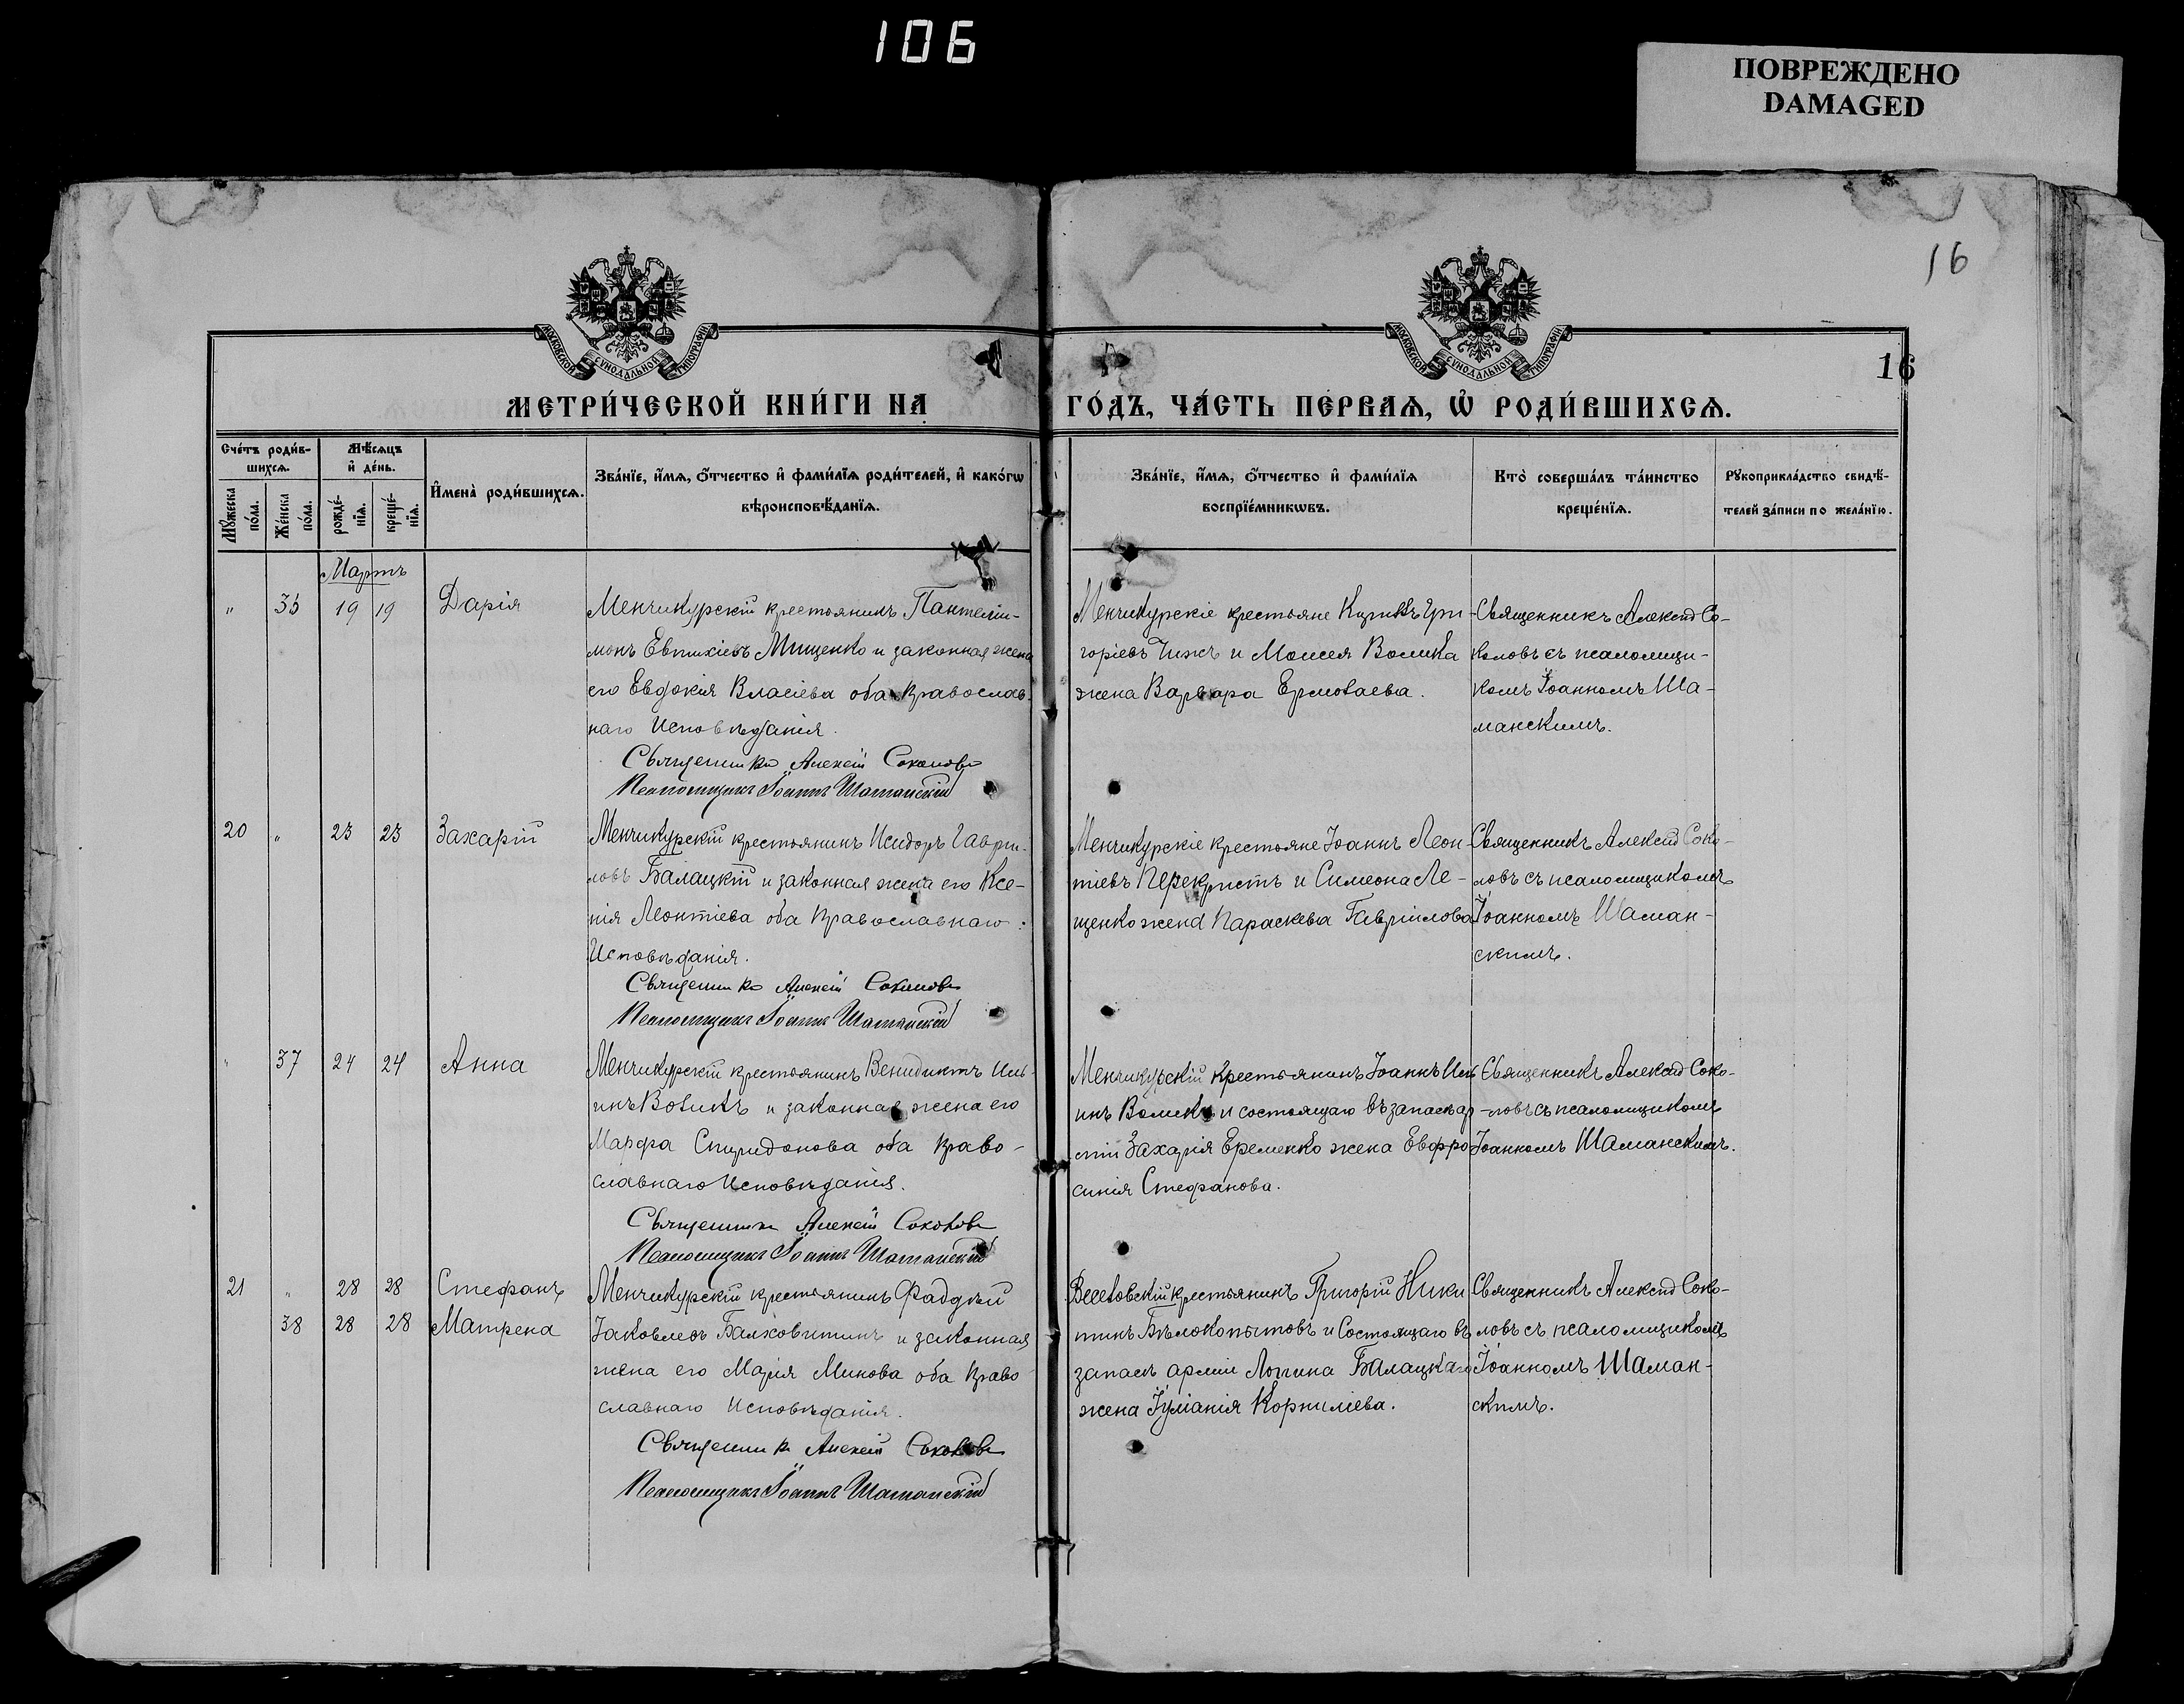 106
ПОВРЕЖДЕНО
DAMAGED
16
МОСКОВСКОЙ СѴНОДАЛЬНОЙ ТИПОГРАФІИ
МОСКОВСКОЙ СѴНОДАЛЬНОЙ ТИПОГРАФІИ
16
МЕТРИ́ЧЕСКОЙ КНИ́ГИ НА ГО́ДЪ, ЧА́СТЬ ПЕ́РВАѦ, Ѡ҆ РОДИ́ВШИХСѦ.
Сче́тъ роди́в-
шихсѧ.
Мꙋ́жеска по́ла.
Же́нска по́ла.
Мѣ́сѧцъ
и҆ де́нь.
рожде́-
нїѧ.
креще́-
нїѧ.
И҆мена̀ роди́вшихсѧ.
Зва́нїе, и҆́мѧ, ѻ҆́тчество и҆ фами́лїѧ роди́телей, и҆ како́гѡ
вѣроисповѣ́данїѧ.
Зва́нїе, и҆́мѧ, ѻ҆́тчество и҆ фами́лїѧ
воспрїе́мникѡвъ.
Кто̀ соверша́лъ та́инство
креще́нїѧ.
Рꙋкоприкла́дство свидѣ́-
телей за́писи по жела́нїю.
Мартъ
" 36 19 19 Дарія
Менчикурскій крестьянинъ Пантелій-
монъ Евтихіевъ Мищенко и законная жена
его Евдокія Власіева оба православ-
наго Исповѣданія.
Священникъ Алексій Соколовъ
Псаломщикъ Іоаннъ Шаманскій
Менчикурскіе крестьяне Кирикъ Гри-
горіевъ Чижъ и Моисея Волика
жена Варвара Ермолаева.
Священникъ Алексій Со-
коловъ съ псаломщи-
комъ Іоанномъ Ша-
манскимъ.
20 " 23 23 Захарій
Менчикурскій крестьянинъ Исидоръ Гаври-
ловъ Балацкій и законная жена его Ксе-
нія Леонтіева оба православнаго
Исповѣданія.
Священникъ Алексій Соколовъ
Псаломщикъ Іоаннъ Шаманскій
Менчикурскіе крестьяне Іоаннъ Леон-
тіевъ Перекристъ и Симеона Ле-
щенко жена Параскева Гавріилова
Священникъ Алексій Соко-
ловъ съ псаломщикомъ
Іоанномъ Шаман-
скимъ.
" 37 24 24 Анна
Менчикурскій крестьянинъ Венидиктъ Иль-
инъ Воликъ и законная жена его
Марфа Спиридонова оба право-
славнаго Исповѣданія.
Священникъ Алексій Соколовъ
Псаломщикъ Іоаннъ Шаманскій
Менчикурскій крестьянинъ Іоаннъ Иль
инъ Воликъ и состоящаго въ запасѣ ар
міи Захарія Еременко жена Евфро
синія Стефанова.
Священникъ Алексій Соко-
-ловъ съ псаломщикомъ
Іоанномъ Шаманскимъ.
21 " 28 28 Стефанъ
38 28 28 Матрена
Менчикурскій крестьянинъ Фаддѣй
Іаковлевъ Балковитинъ и законная
жена его Марія Минова оба право
славнаго Исповѣданія.
Священникъ Алексій Соколовъ
Псаломщикъ Іоаннъ Шаманскій
Веселовскій крестьянинъ Григорій Ники
тинъ Бѣлокопытовъ и Состоящаго въ
запасѣ арміи Логина Балацкаго
жена Іуліанія Корниліева.
Священникъ Алексій Соко-
ловъ съ псаломщикомъ
Іоанномъ Шаман-
скимъ.